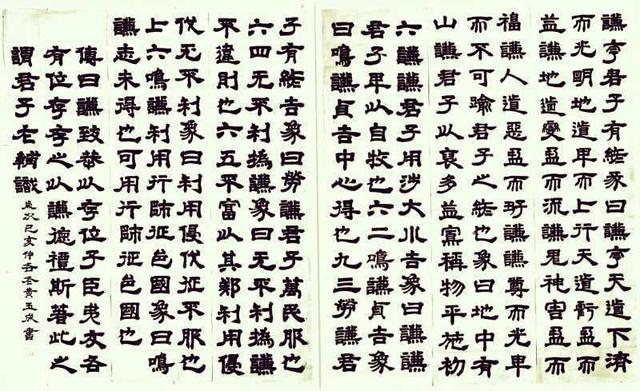 謙亨君子有終彖曰謙亨天道下濟
而光明地道卑而上行天道虧盈而
益謙地道變盈而流謙鬼神害盈而
福謙人道惡盈而好謙謙尊而光卑
而不可踰君子之終也象曰地中有
山謙君子以裒多益寡稱物平施初
六謙謙君子用涉大川吉象曰謙謙
君子卑以自牧也六二鳴謙貞吉象
曰鳴謙貞吉中心得也九三勞謙君
子有終吉象曰勞謙君子萬民服也
六四无不利撝謙象曰无不利撝謙
不違則也六五不富以其鄰利用侵
伐无不利象曰利用侵伐征不服也
上六鳴謙利用行師征邑國象曰鳴
謙志未得也可用行師征邑國也
傳曰謙致恭以存位子臣弟友各
有位存存之以謙德禮斯著此之
謂君子左輔識 己亥仲冬書